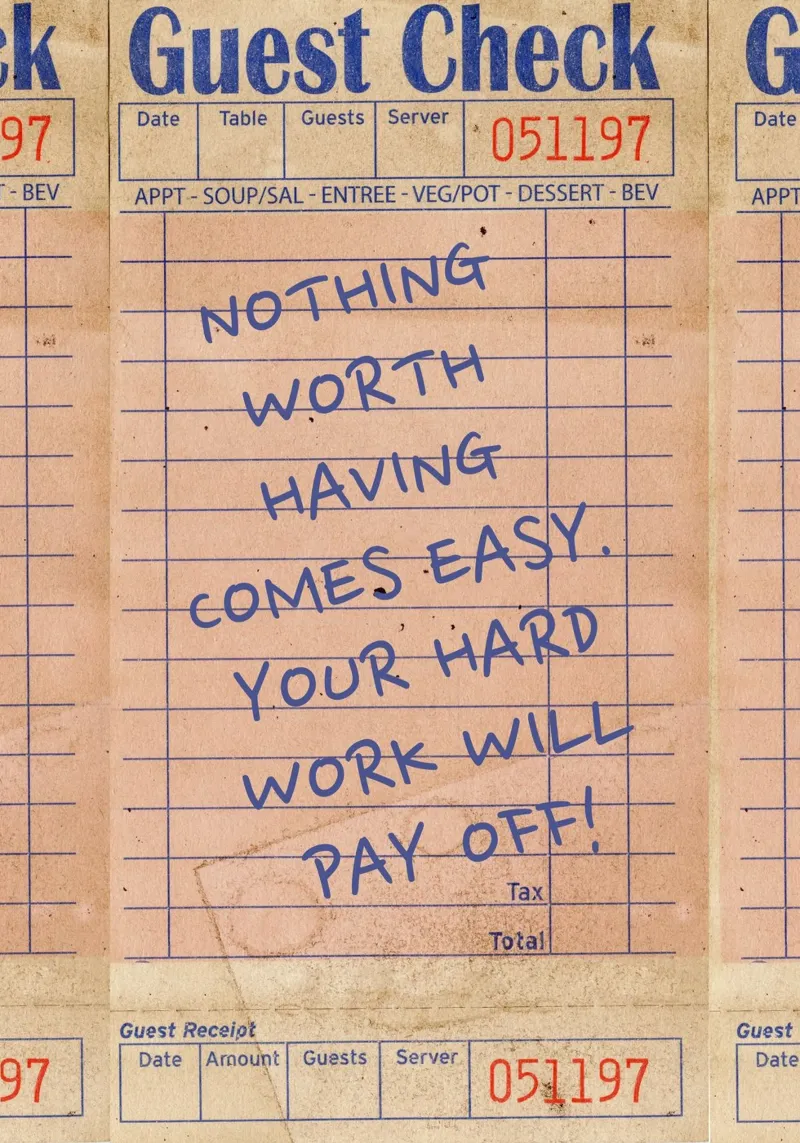 ck
97
T - BEV
97
Guest Check
Date Table Guests Server 051197
APPT - SOUP/SAL - ENTREE - VEG/POT - DESSERT - BEV
NOTHING
WORTH
HAVING
COMES EASY.
YOUR HARD
WORK WILL
PAY OFF!
Tax
Total
Guest Receipt
Date Amount Guests Server 051197
G
Date
APPT
Guest
Date